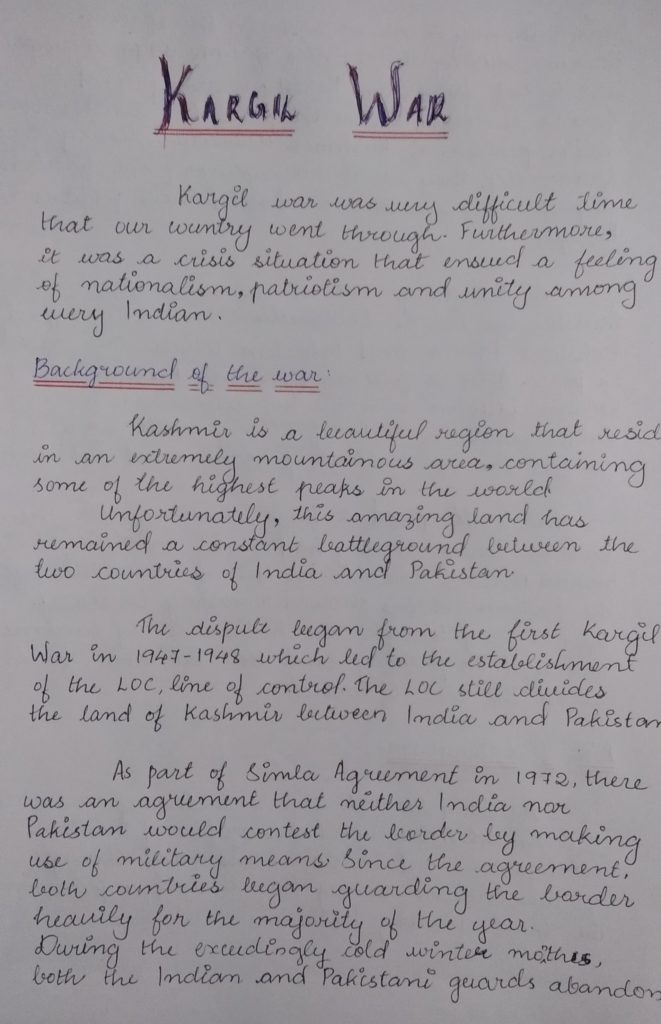 KARGIL WAR
Kargil war was very difficult time
that our country went through. Furthermore,
it was a crisis situation that ensued a feeling
of nationalism, patriotism and unity among
every Indian.
Background of the war:
Kashmir is a beautiful region that resid
in an extremely mountainous area, containing
some of the highest peaks in the world
Unfortunately, this amazing land has
remained a constant battleground between the
two countries of India and Pakistan.
The dispute began from the first Kargil
War in 1947-1948 which led to the establishment
of the LOC, line of control. The LOC still divides
the land of Kashmir between India and Pakistan
As part of Simla Agreement in 1972, there
was an agreement that neither India nor
Pakistan would contest the border by making
use of military means. Since the agreement,
both countries began guarding the border
heavily for the majority of the year.
During the exceedingly cold winter moths,
both the Indian and Pakistani guards abandon